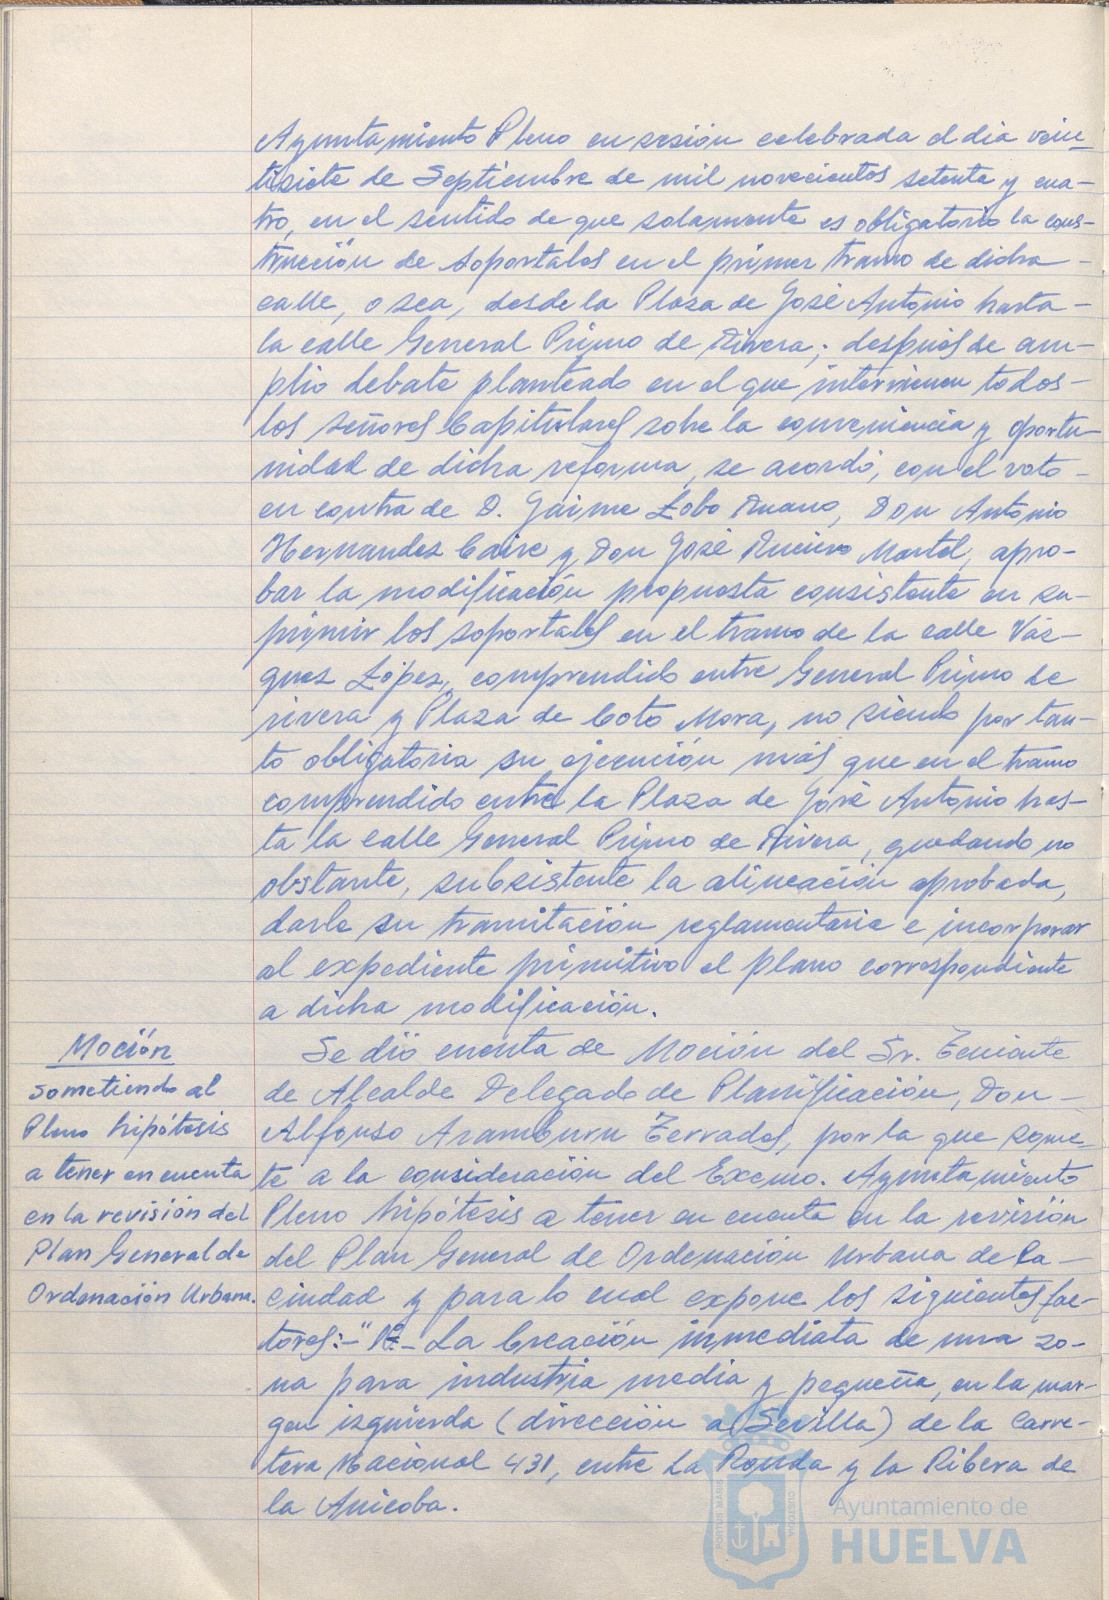 Ayuntamiento Pleno en sesión celebrada el día vein-
tisiete de Septiembre de mil novecientos setenta y cua-
tro, en el sentido de que solamente es obligatorio la cons-
trucción de soportales en el primer tramo de dicha -
calle, o sea, desde la Plaza de José Antonio hasta -
la calle General Primo de Rivera; después de am-
plio debate planteado en el que intervienen todos -
los señores Capitulares sobre la conveniencia y oportu-
nidad de dicha reforma, se acordó, con el voto -
en contra de D. Jaime Lobo Ruano, Don Antonio
Hernandez Caire y Don José Martel, apro-
bar la modificación propuesta consistente en su-
primir los soportales en el tramo de la calle Váz-
quez López, comprendido entre General Primo de
rivera y Plaza de Coto Mora, no siendo por tan-
to obligatoria su ejecución más que en el tramo
comprendido entre la Plaza de José Antonio has-
ta la calle General Primo de Rivera, quedando no
obstante, subsistente la alineación aprobada,
darle su tramitación reglamentaria e incorporar
al expediente primitivo el plano correspondiente
a dicha modificación.
Moción
sometiendo al
Pleno hipótesis
a tener en cuenta
en la revisión del
Plan General de
Ordenación Urbana.
Se dió cuenta de Moción del Sr. Teniente
de Alcalde Delegado de Planificación, Don -
Alfonso Aramburu Terrades, por la que some-
te a la consideración del Excmo. Ayuntamiento
Pleno hipótesis a tener en cuenta en la revisión
del Plan General de Ordenación Urbana de la -
ciudad y para lo cual expone los siguientes fac-
tores:-" - La Creación inmediata de una zo-
na para industria media y pequeña, en la mar-
gen izquierda (dirección a Sevilla) de la Carre-
tera Nacional 431, entre La Ronda y la Ribera de
la Anicoba.
PORTUS MARIS
CUSTODIA
Ayuntamiento de
HUELVA